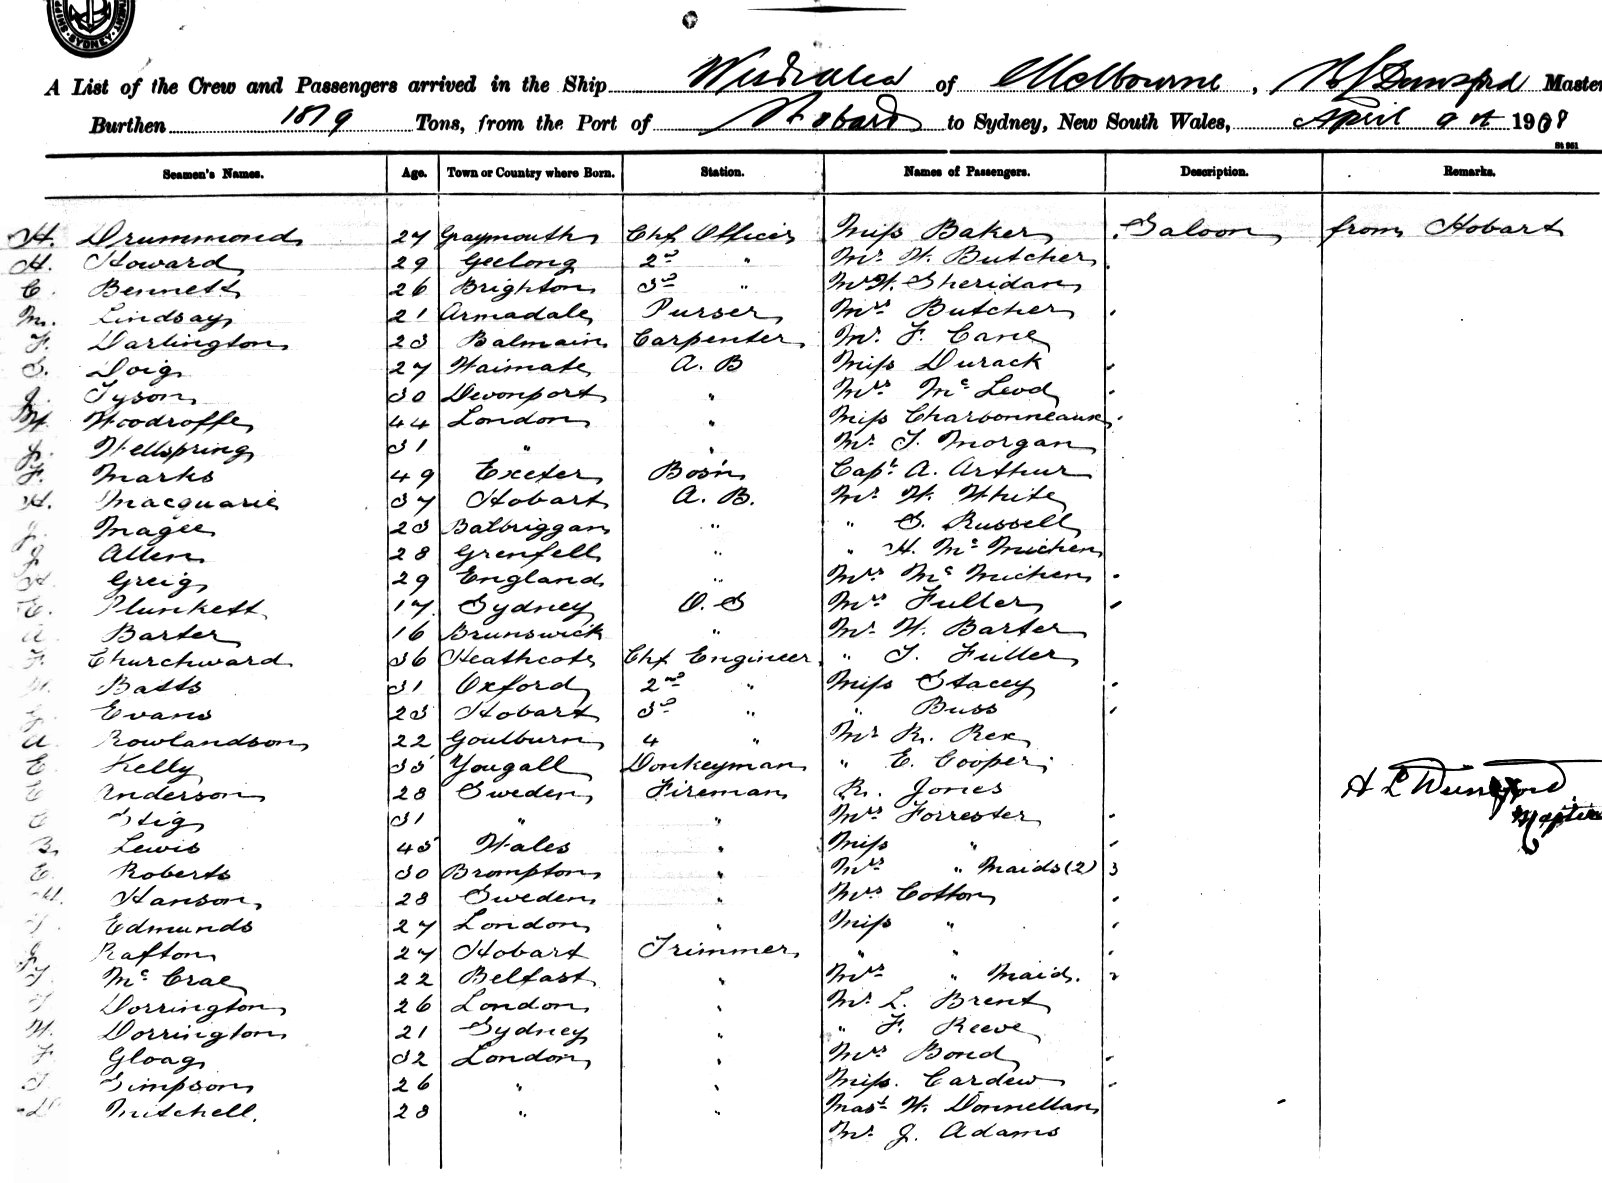 SYDNEY
A List of the Crew and Passengers arrived in the Ship Westralia of Melbourne, Master
Burthen 1819 Tons, from the Port of Hobart to Sydney, New South Wales, April 9th 1908
Seamen's Names. Age. Town or Country where Born. Station. Names of Passengers. Description. Remarks.
H. Drummond 27 Graymouth Chf Officer Miss Baker Saloon from Hobart
H. Howard 29 Geelong 2nd " Mr. W. Butcher
C. Bennett 26 Brighton 3rd " Mr W. Sheridan
M. Lindsay 21 Armadale Purser Mrs Butcher
F. Darlington 23 Balmain Carpenter Mr. F. Cane
S. Doig 27 Waimate A. B Miss Durack
J. Tyson 30 Devonport " Mrs McLeod
W. Woodroffe 44 London " Miss Charbonneaux
J. Wellspring 31 " " Mr. T. Morgan
F. Marks 49 Exeter Bos'n Capt A. Arthur
H. Macquarie 37 Hobart A. B. Mr W. White
J. Magee 23 Balbriggan " " S. Russell
J Allen 28 Grenfell " " H. McMichen
Greig 29 England " Mrs McMichen
E. Plunkett 17 Sydney O. S Mrs Fuller
A. Barter 16 Brunswick " Mr. W. Barter
F. Churchward 36 Heathcote Chf Engineer " T. Fuller
Batts 31 Oxford 2nd " Miss Stacey
Evans 23 Hobart 3rd " " Buss
A. Rowlandson 22 Goulburn 4 " Mr R. Rex
E. Kelly 35 Yougall Donkeyman " E. Cooper
Anderson 28 Sweden Fireman R. Jones
Stig 31 " " Mrs Forrester
B. Lewis 45 Wales " Miss "
E. Roberts 30 Brompton " Mrs " Maids (2) 3
H. Hanson 28 Sweden " Mrs Cotton
T. Edmunds 27 London " Miss "
J. Rafton 27 Hobart Trimmer " "
T. McCrae 22 Belfast " Mrs " Maid. 2
T Dorrington 26 London " Mr L. Brent
W. Dorrington 21 Sydney " " F. Reeve
F. Gloag 32 London " Mrs Bond
T. Simpson 26 " " Miss. Cardew
D Mitchell. 28 " " Mast W. Donnellan
Mr. J. Adams
Master